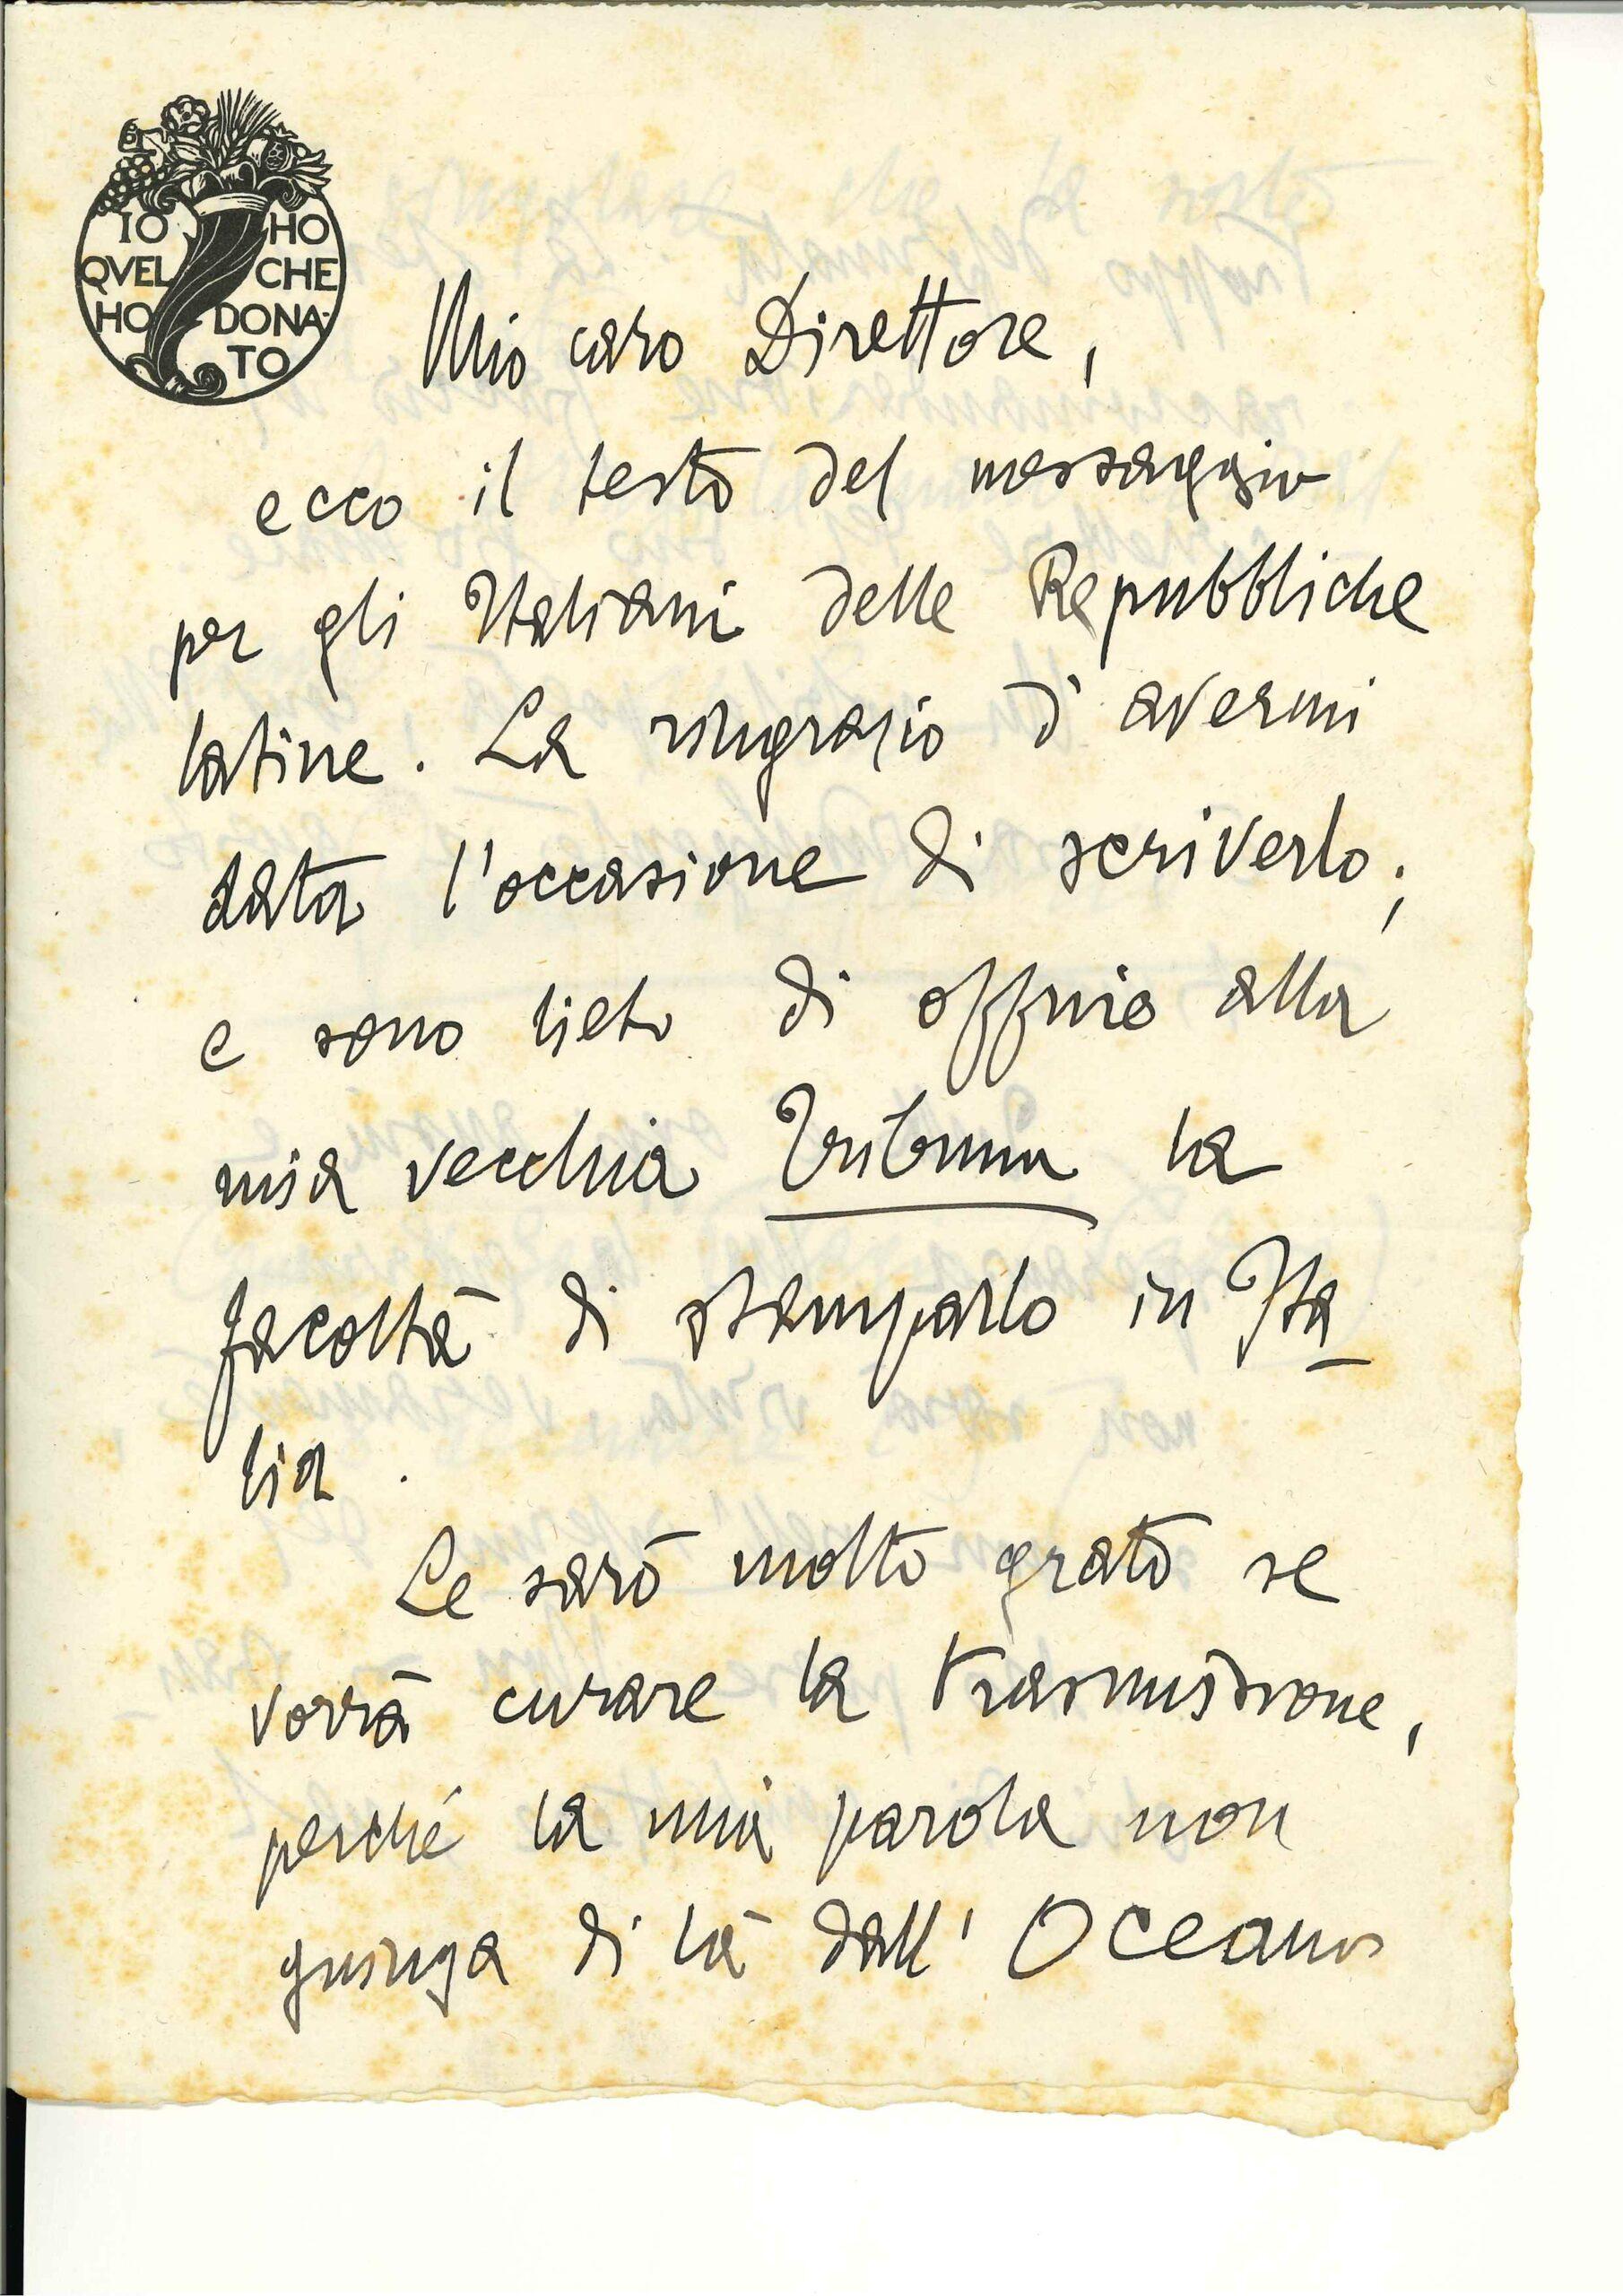 IO HO
QVEL CHE
HO DONA-
TO
Mio caro Direttore,
ecco il testo del messaggio
per gli Italiani delle Repubbliche
latine. La ringrazio d'avermi
data l'occasione di scriverlo;
e sono lieto di offrire alla
mia vecchia Tribuna la
facoltà di stamparlo in Ita
lia.
Le sarò molto grato se
vorrà curare la trasmissione,
perché la mia parola non
giunga di là dall'Oceano